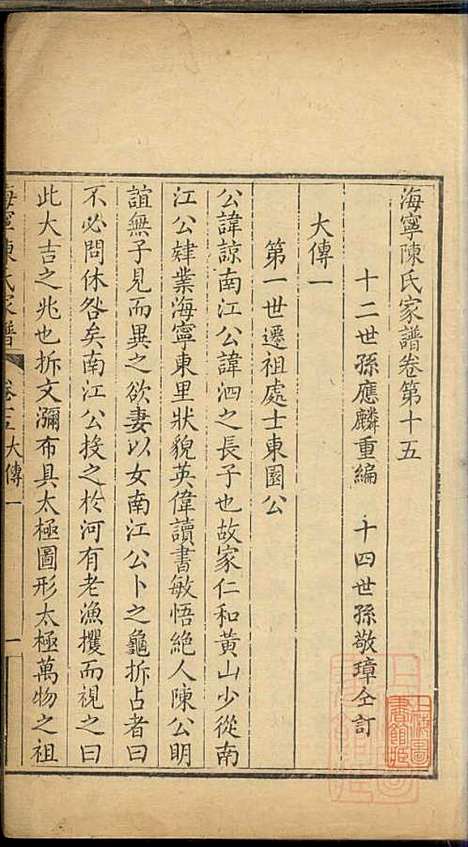 海寧陳氏家譜卷第十五
十二世孫應麟重編　十四世孫敬璋仝訂
大傳一
第一世遷祖處士東園公
公諱諒南江公諱泗之長子也故家仁和黃山少從南
江公肄業海寧東里狀貌英偉讀書敏悟絕人陳公明
誼無子見而異之欲妻以女南江公卜之龜拆占者曰
不必問休咎矣南江公投之於河有老漁攫而視之曰
此大吉之兆也拆文瀰布具太極圖形太極萬物之祖
海寧陳氏家譜　卷十五　大傳一　一
上海圖書館藏